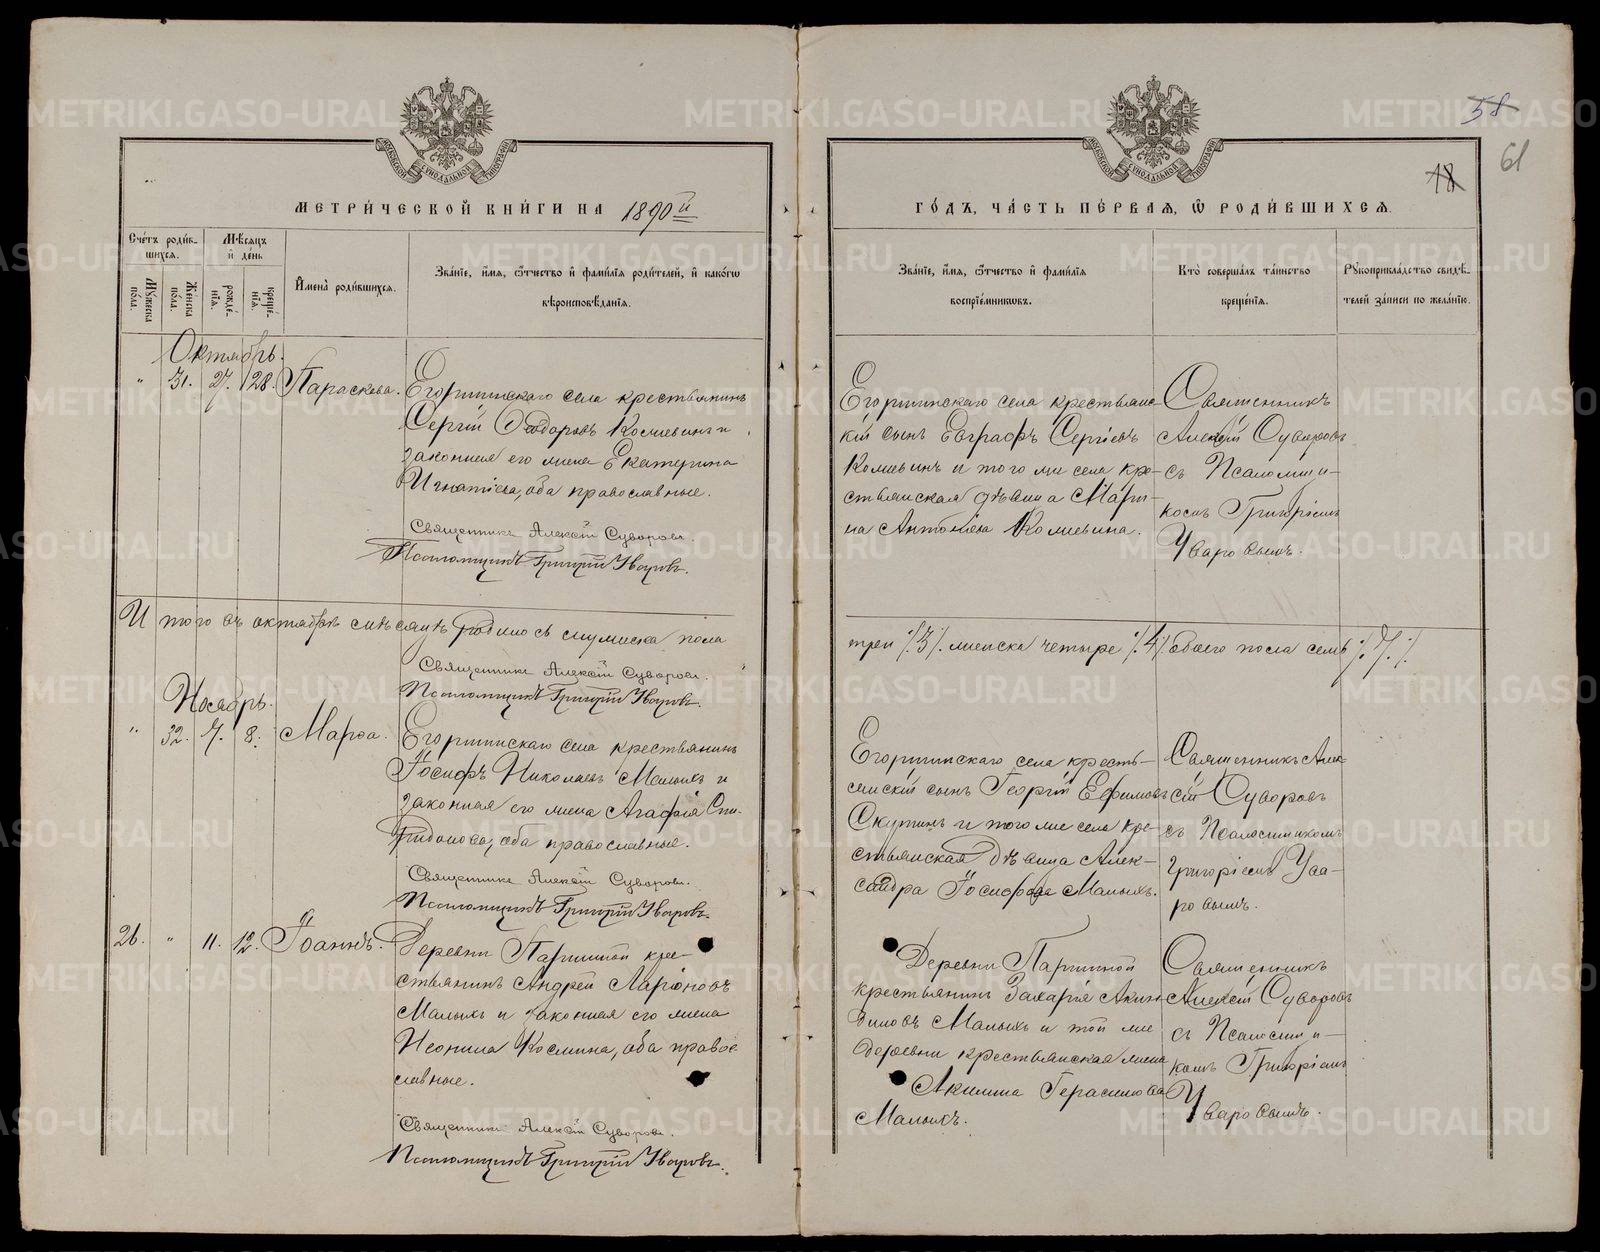 58
61
18
МОСКОВСКОЙ СѴНОДАЛЬНОЙ ТИПОГРАФІИ
МОСКОВСКОЙ СѴНОДАЛЬНОЙ ТИПОГРАФІИ
МЕТРИ́ЧЕСКОЙ КНИ́ГИ НА 1890й
ГО́ДЪ, ЧА́СТЬ ПЕ́РВАЯ, Ѿ РОДИ́ВШИХСЯ.
Сче́тъ роди́вшихся.
Мѣ́сяцъ и де́нь
Му́жеска по́ла.
Же́нска по́ла.
рожде́нїя.
креще́нїя.
И̓мена̀ роди́вшихся.
Зва́нїе, и́мя, ѻ́тчество и фами́лїя роди́телей, и како́гѡ вѣроисповѣ́данїя.
Зва́нїе, и́мя, ѻ́тчество и фами́лїя воспрїе́мниковъ.
Кто̀ соверша́лъ та́инство креще́нїя.
Рꙋкоприкла́дство свидѣ́телей за́писи по жела́нїю.
Октябрь.
" 31. 27. 28. Параскева.
Егоршинскаго села крестьянинъ
Сергій Ѳеодоровъ Комиѣинъ и
законная его жена Екатерина
Игнатіева, оба православные.
Священникъ Алексій Суворовъ.
Псаломщикъ Григорій Уваровъ.
Егоршинскаго села крестьянс-
кій сынъ Евграфъ Сергіевъ
и того же села кре-
стьянская дѣвица Мари-
на Антоніева
Священникъ
Алексій Суворовъ
съ Псаломщи-
комъ Григоріемъ
Уваровымъ.
Итого въ октябрѣ мѣсяцѣ родилось мужеска пола
три /3/. женска четыре /4/. обоего пола семь /7/.
Священникъ Алексій Суворовъ.
Псаломщикъ Григорій Уваровъ.
Ноябрь.
" 32. 7. 8. Марѳа.
Егоршинскаго села крестьянинъ
Іосифъ Николаевъ Малыхъ и
законная его жена Агафія Спи-
ридонова, оба православные.
Священникъ Алексій Суворовъ.
Псаломщикъ Григорій Уваровъ.
Егоршинскаго села кресть-
янскій сынъ Георгій Ефимовъ
Скутинъ и того же села кре-
стьянская дѣвица Алек-
сандра Іосифова Малыхъ.
Священникъ Алек-
сій Суворовъ
съ Псаломщикомъ
Григоріемъ Ува-
ровымъ.
26. " 11. 12. Іоаннъ.
Деревни Паршиной кре-
стьянинъ Андрей Ларіоновъ
Малыхъ и законная его жена
Неонила Космина, оба право-
славные.
Священникъ Алексій Суворовъ.
Псаломщикъ Григорій Уваровъ.
Деревни Паршиной
крестьянинъ Захарія Акин-
диновъ Малыхъ и той же
деревни крестьянская жена
Акилина Герасимова
Малыхъ.
Священникъ
Алексій Суворовъ
съ Псаломщи-
комъ Григоріемъ
Уваровымъ.
METRIKI.GASO-URAL.RU